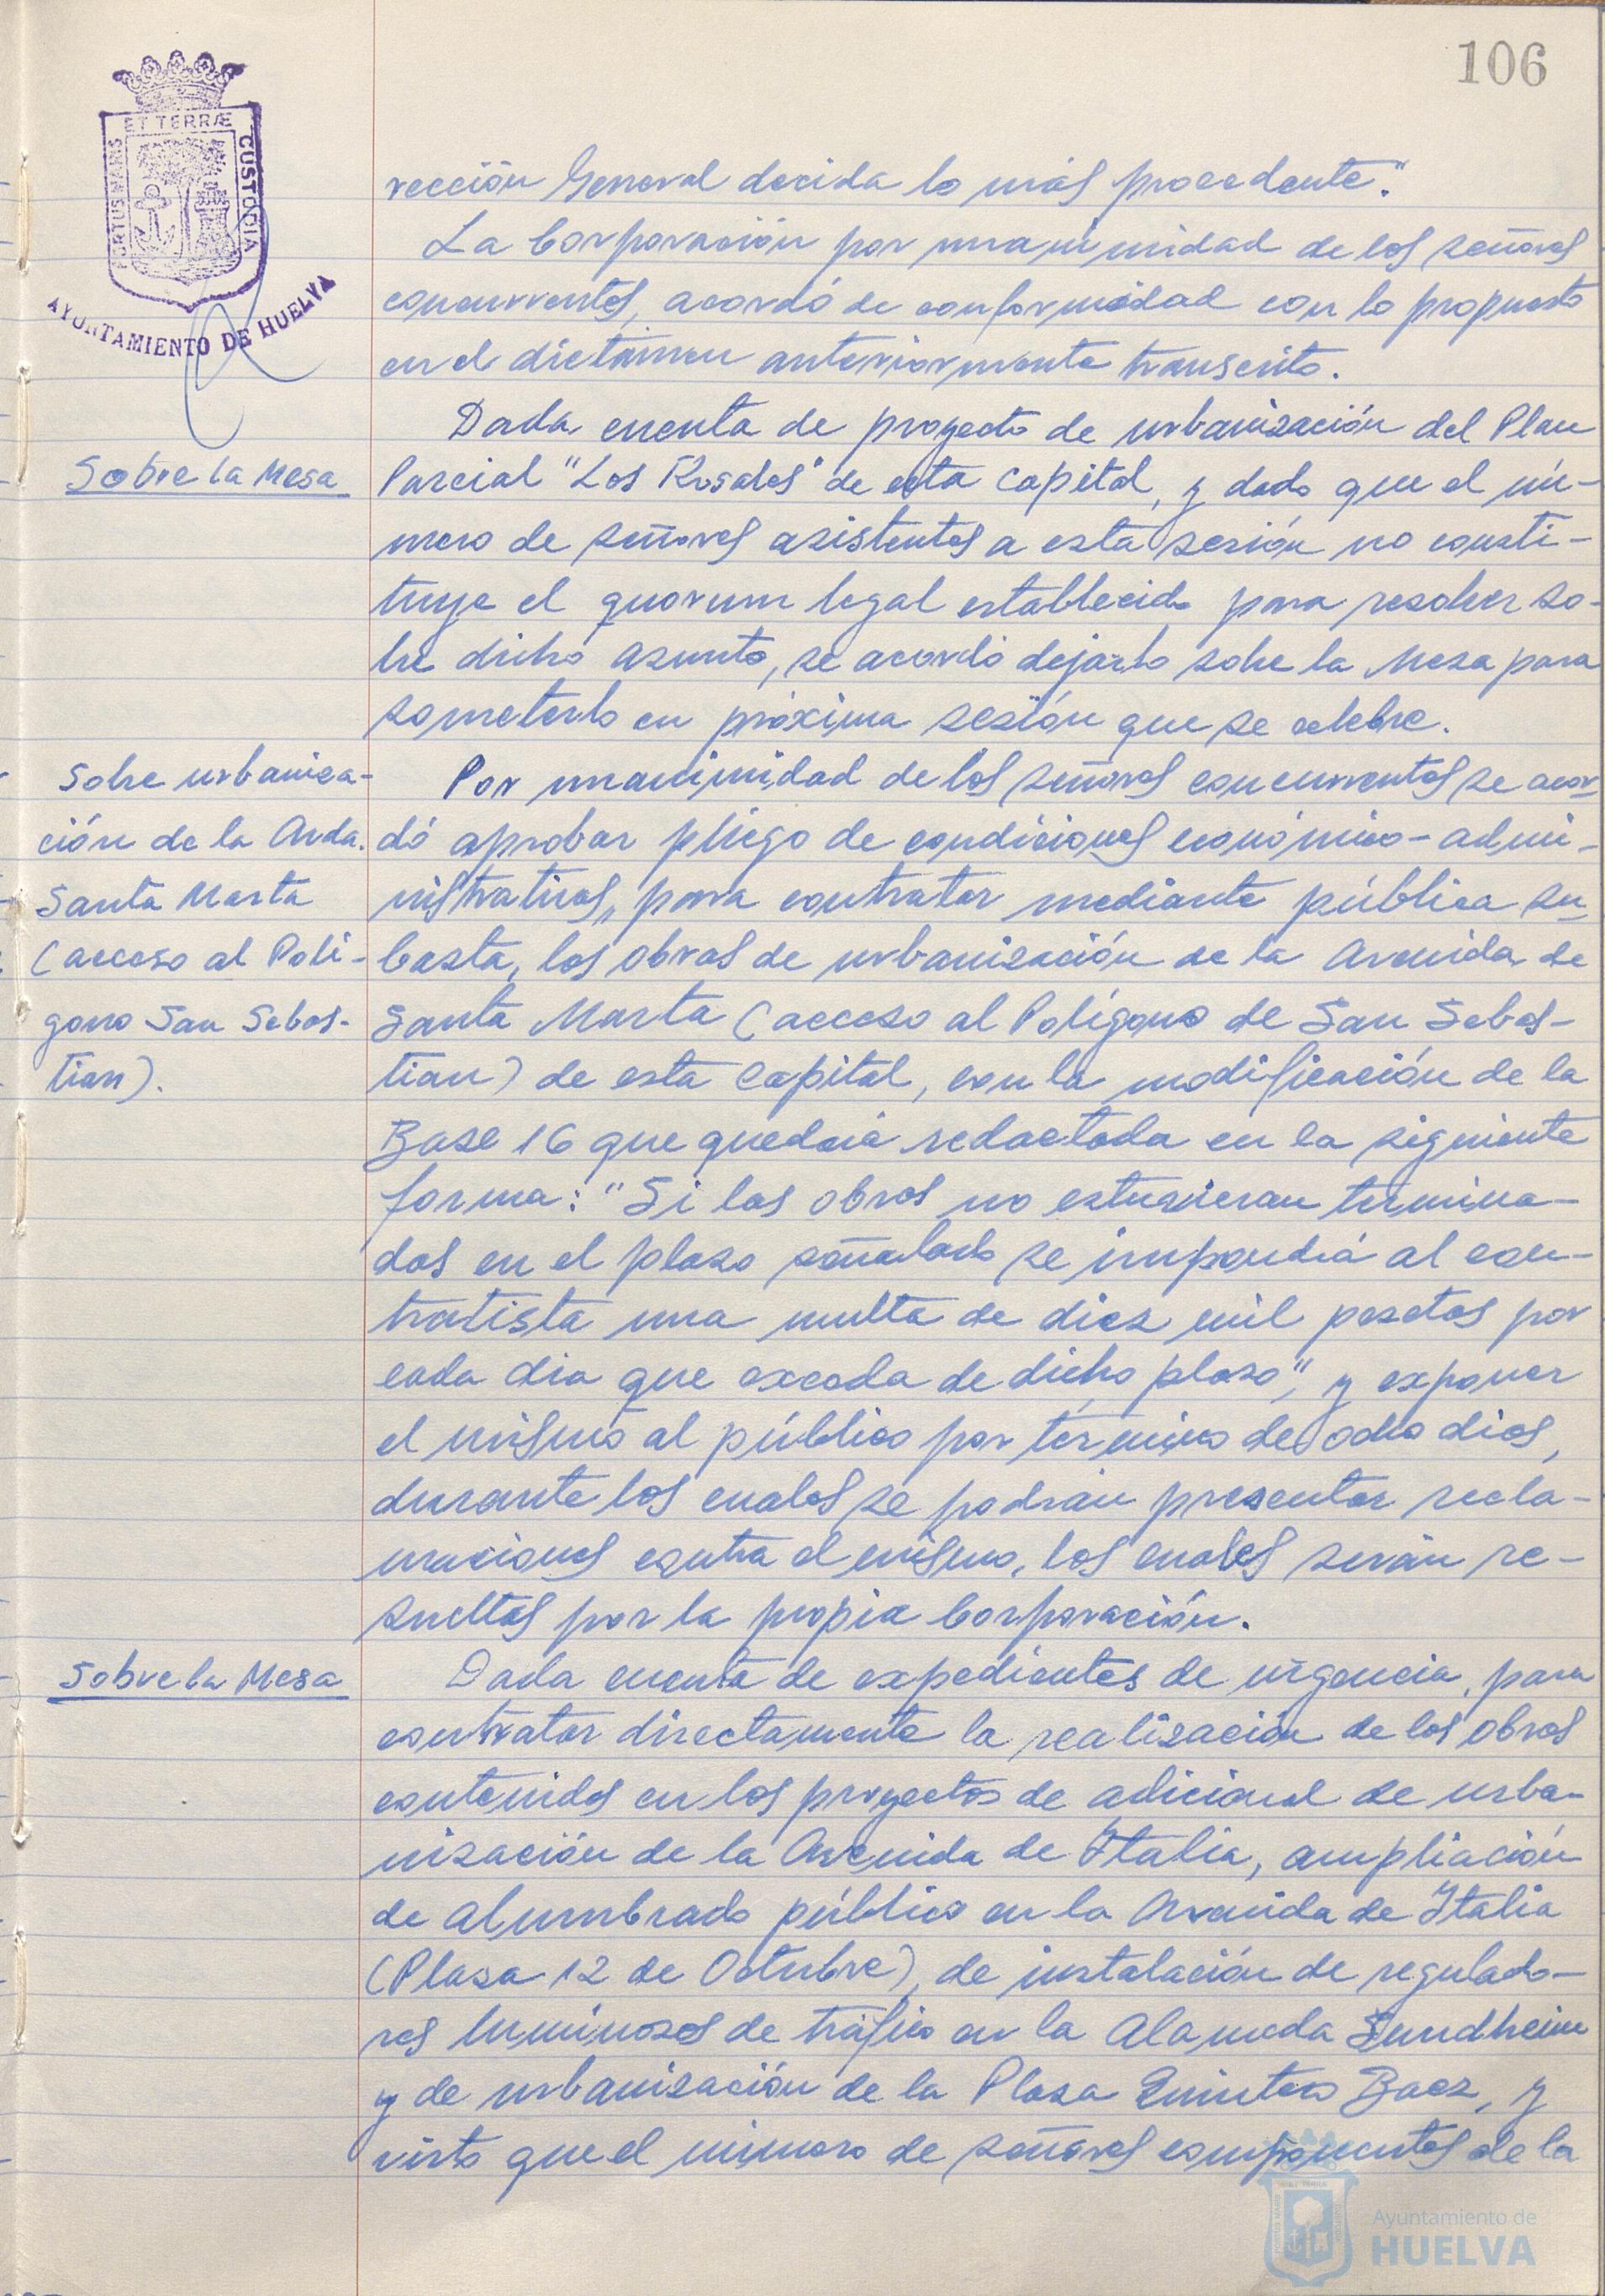 106
PORTUS MARIS
ET TERRÆ
CUSTODIA
AYUNTAMIENTO DE HUELVA
rección General decida lo más procedente".
La Corporación por unanimidad de los señores
concurrentes, acordó de conformidad con lo propuesto
en el dictamen anteriormente transcrito.
Sobre la Mesa
Dada cuenta de proyecto de urbanización del Plan
Parcial "Los Rosales" de esta Capital, y dado que el nú-
mero de señores asistentes a esta sesión no consti-
tuye el quorum legal establecido para resolver so-
bre dicho asunto, se acordó dejarlo sobre la Mesa para
someterlo en próxima sesión que se celebre.
Sobre urbaniza-
ción de la Avda.
Santa Marta
(acceso al Polí-
gono San Sebas-
tian).
Por unanimidad de los señores concurrentes se acor-
dó aprobar pliego de condiciones económico-admi-
nistrativas, para contratar mediante pública su-
basta, las obras de urbanización de la Avenida de
Santa Marta (acceso al Polígono de San Sebas-
tian) de esta Capital, con la modificación de la
Base 16 que quedará redactada en la siguiente
forma: "Si las obras no estuvieran termina-
das en el plazo señalado se impondrá al con-
tratista una multa de diez mil pesetas por
cada dia que exceda de dicho plazo", y exponer
el mismo al público por término de ocho dias,
durante los cuales se podrán presentar recla-
maciones contra el mismo, las cuales serán re-
sueltas por la propia Corporación.
Sobre la Mesa
Dada cuenta de expedientes de urgencia, para
contratar directamente la realización de las obras
contenidas en los proyectos de adicional de urba-
nización de la Avenida de Italia, ampliación
de alumbrado público en la Avenida de Italia
(Plaza 12 de Octubre), de instalación de regulado-
res luminosos de tráfico en la Alameda Sundheim
y de urbanización de la Plaza Quintero Baez, y
visto que el número de señores componentes de la
Ayuntamiento de
HUELVA